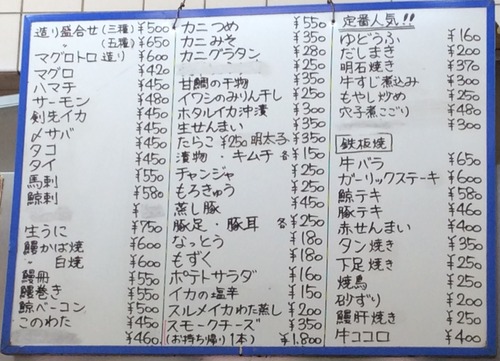 造り盛合せ (三種) ¥500
〃 (五種) ¥650
マグロトロ造り ¥600
マグロ ¥420
ハマチ ¥450
サーモン ¥480
剣先イカ ¥450
〆サバ ¥450
タコ ¥450
タイ ¥450
馬刺 ¥550
鯨刺 ¥580
¥
生うに ¥750
鰻かば焼 ¥600
〃 白焼 ¥600
鰻冊 ¥550
鰻巻き ¥550
鯨ベーコン ¥550
このわた ¥450
¥460
カニつめ ¥550
カニみそ ¥350
カニグラタン ¥280
¥250
甘鯛の干物 ¥450
イワシのみりん干し ¥250
ホタルイカ沖漬 ¥350
生せんまい ¥250
たらこ ¥250 明太子 ¥350
漬物・キムチ 各 ¥150
チャンジャ ¥250
もろきゅう ¥250
蒸し豚 ¥350
豚足・豚耳 各 ¥250
なっとう ¥180
もずく ¥180
ポテトサラダ ¥350
イカの塩辛 ¥150
スルメイカわた蒸し ¥200
スモークチーズ ¥350
(お持ち帰り1本) ¥1,800
定番人気!!
ゆどうふ ¥160
だしまき ¥200
明石焼き ¥370
牛すじ煮込み ¥300
もやし炒め ¥250
穴子煮こごり ¥480
¥300
鉄板焼
牛バラ ¥650
ガーリックステーキ ¥600
鯨テキ ¥580
豚テキ ¥460
赤せんまい ¥400
タン焼き ¥350
下足焼き ¥250
焼鳥 ¥200
砂ずり ¥200
鰻肝焼き ¥250
牛ココロ ¥400